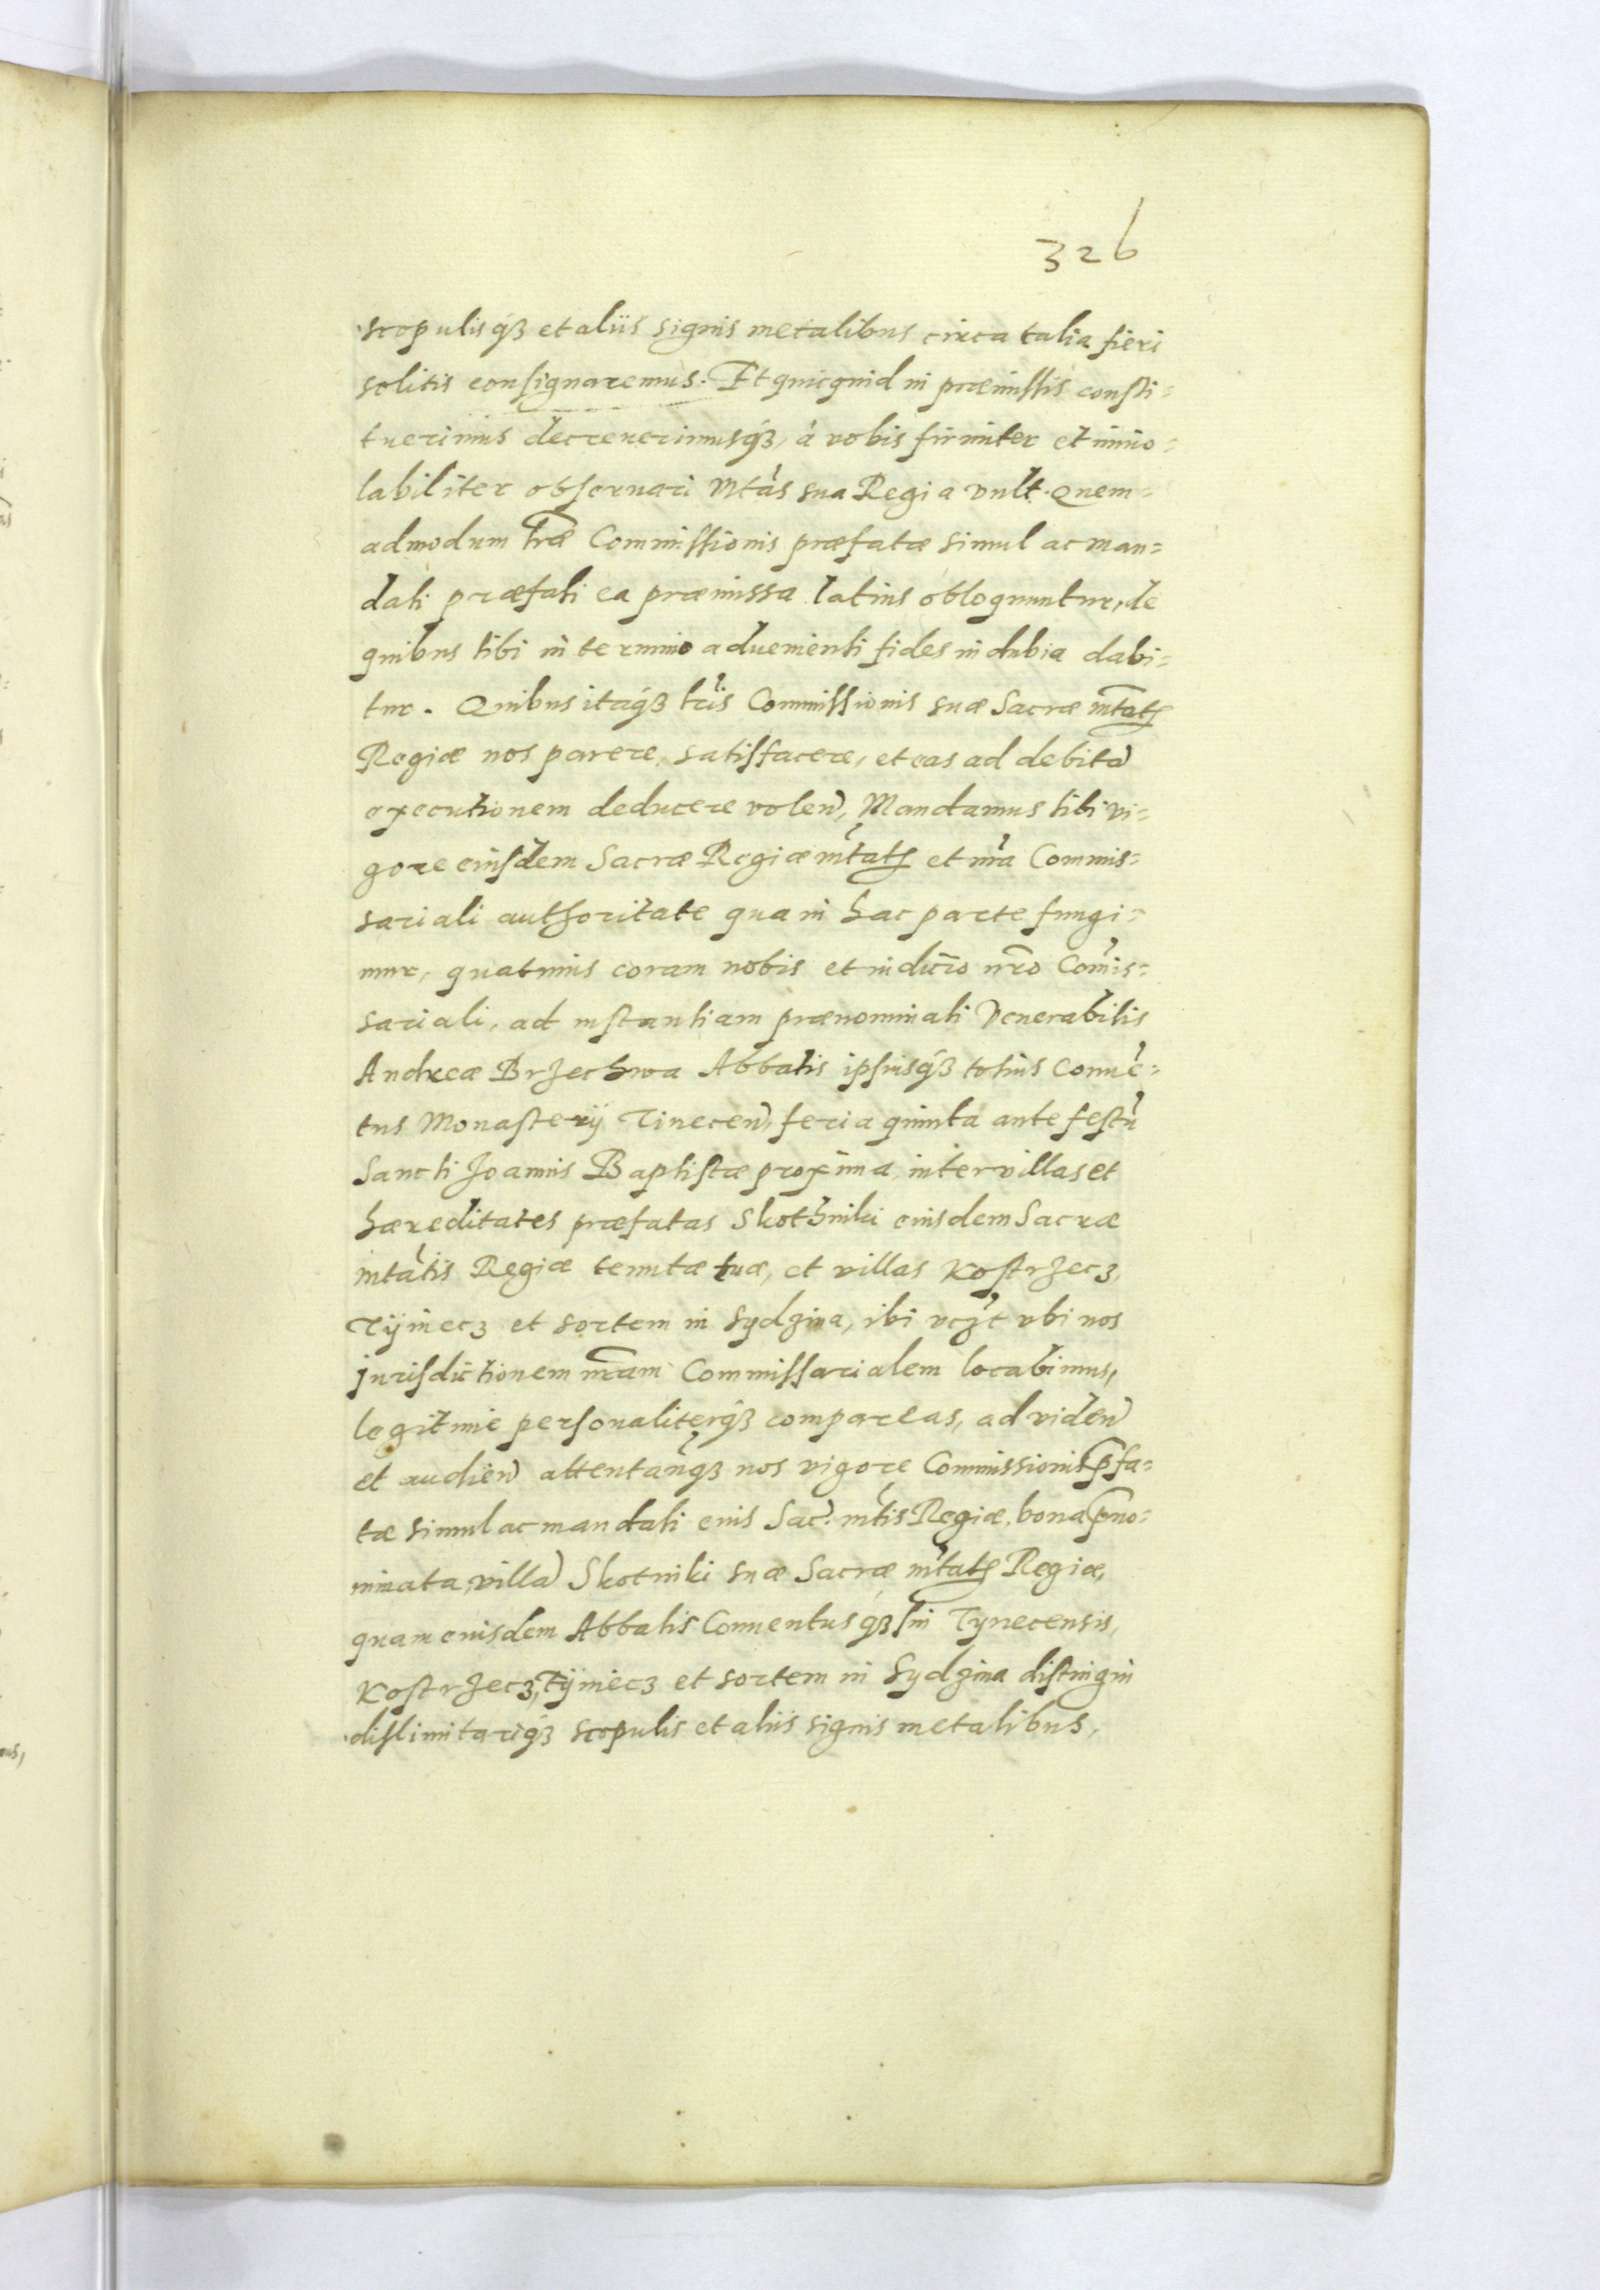 326
scopulisq₃ et aliis signis metalibus circa talia fieri
solitis consignaremus. Et quicquid in præmissis consti=
tuerimus decreuerimusq₃, à vobis firmiter et inuio=
labiliter obseruari Mtas sua Regia vult. Quem=
admodum træ Commissionis præfatæ simul ac man=
dati præfati ea præmissa latius obloquuntur, de
quibus tibi in termino aduenienti fides indubia dabi=
tur. Quibus itaq₃ tris Commissionis suæ Sacræ mtatis
Regiæ nos parere, satisfacere, et eas ad debitā
executionem deducere volen, Mandamus tibi vi=
gore eiusdem Sacræ Regiæ mtatis et nra Commis=
sariali authoritate qua in hac parte fungi=
mur, quatinus coram nobis et iudicio nro Comis=
sariali, ad instantiam prænominati Venerabilis
Andreæ Brzechwa Abbatis ipsiusq₃ totius Conuē=
tus Monasterij Tinecen, feria quinta ante festū
Sancti Joannis Baptistæ proxima, inter villas et
hæreditates præfatas Skothniki eiusdem Sacræ
mtatis Regiæ tenutæ tuæ, et villas Kostrzecz,
Tÿniecz et sortem in Sydzina, ibi vczt vbi nos
jurisdictionem nram Commissarialem locabimus,
legitime personaliterq₃ compareas, ad viden
et audien attentanq₃ nos vigore Commissionis pfa=
tæ simul ac mandati eius Sac. mtis Regiæ, bona pno=
minata, villā Skotniki suæ Sacræ mtatis Regiæ,
quam eiusdem Abbatis Conuentusq₃ sui Tynecensis,
Kostrzecz, Tÿniecz et sortem in Sydzina distingui
dislimitariq₃ scopulis et aliis signis metalibus,